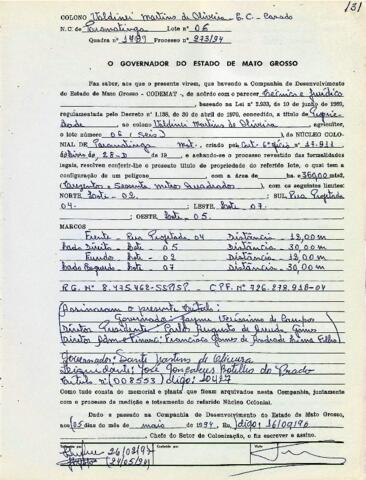 131
COLONO Valdinei Martins de Oliveira - E. C. - Casado
N.C. de Paranatinga Lote nº 06
Quadra nº Processo nº 273/94
O GOVERNADOR DO ESTADO DE MATO GROSSO
Faz saber, aos que o presente virem, que havendo a Companhia de Desenvolvimento
do Estado de Mato Grosso - CODEMAT -, de acordo com o parecer Técnico e Jurídico
, baseado na Lei nº 2.933, de 10 de junho de 1969,
regulamentada pelo Decreto nº 1.138, de 30 de abril de 1970, concedido, a título de
Valdinei Martins de Oliveira agricultor,
o lote número 06 (seis) do NÚCLEO COLO-
NIAL DE Paranatinga Mat.
Livro 28-D de 19 , e achando-se o processo revestido das formalidades
legais, resolveu conferir-lhe o presente título de propriedade do referido lote, o qual tem a
configuração de um polígono com a área de ha = 360,00 mts2,
(Trezentos e Sessenta Metros Quadrados) com os seguintes limites:
NORTE Lote - 02. SUL Rua Projetada
04. LESTE Lote - 07.
OESTE Lote - 05.
MARCOS
Frente - Rua Projetada 04 Distância - 12,00 m
Lado Direito - Lote - 05 Distância - 30,00 m
Fundo - Lote - 02 Distância - 12,00 m
Lado Esquerdo - Lote - 07 Distância - 30,00 m
R.G. Nº 8.475.468-SSP/SP - C.P.F. Nº 726.278.918-04
Assinaram o presente título:
Governador: Jayme Veríssimo de Campos
Diretor Presidente: Carlos Augusto de Arruda Gomes
Governador: Dante Martins de Oliveira
Liquidante: José Gonçalves Botelho do Prado
Título nº (008553) digo: 10427
Tudo como consta do memorial e planta que ficam arquivados nesta Companhia, juntamente
com o processo de medição e loteamento do referido Núcleo Colonial.
Dado e passado na Companhia de Desenvolvimento do Estado de Mato Grosso,
aos (05 dias do mês de maio de 1994, digo: 16/09/96
Chefe do Setor de Colonização, o fiz escrever e assino.
Visto